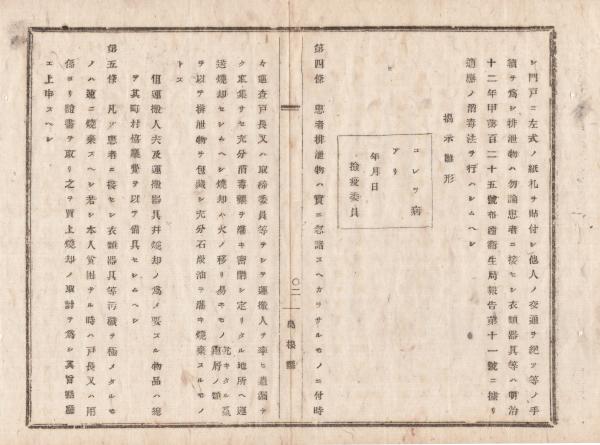 シ門戸ニ左式ノ紙札ヲ貼付シ他人ノ交通ヲ絶ツ等ノ手
續ヲ爲シ排泄物ハ勿論患者ニ接セシ衣類器具等ハ明治
十二年甲第百二十五號布達衛生局報告第十一號ニ據リ
適應ノ消毒法ヲ行ハシムヘシ
掲示雛形
コレラ病
アリ
年月日
檢疫委員
第四條 患者排泄物ハ實ニ忽諸スヘカラサルモノニ付時
々運査戸長又ハ取締委員等シテ運搬人ヲ率ヒ
ク取集サセ充分消毒藥ヲ灌キ密閉シ定リタル地所ヘ運
送焼却セシムヘシ焼却ハ火ノ移リ易キモノ
ヲ以テ排泄物ヲ包藏シ充分石炭油ヲ灌キ燒棄スルモノ
トス
但運搬人夫及運搬器具幷焼却ノ爲メ要スル物品ハ總
テ其町村協議費ヲ以テ備具セシムヘシ
第五條 凡ソ患者ニ接セシ衣類器具等汚穢ヲ極メタルモ
ノハ速ニ燒棄スヘシ若シ本人貧困ナル時ハ戸長又ハ用
係ヨリ證書ヲ取リ之ヲ買上燒却ノ取計ヲ爲シ其旨縣廳
エ上申スヘシ
島根縣